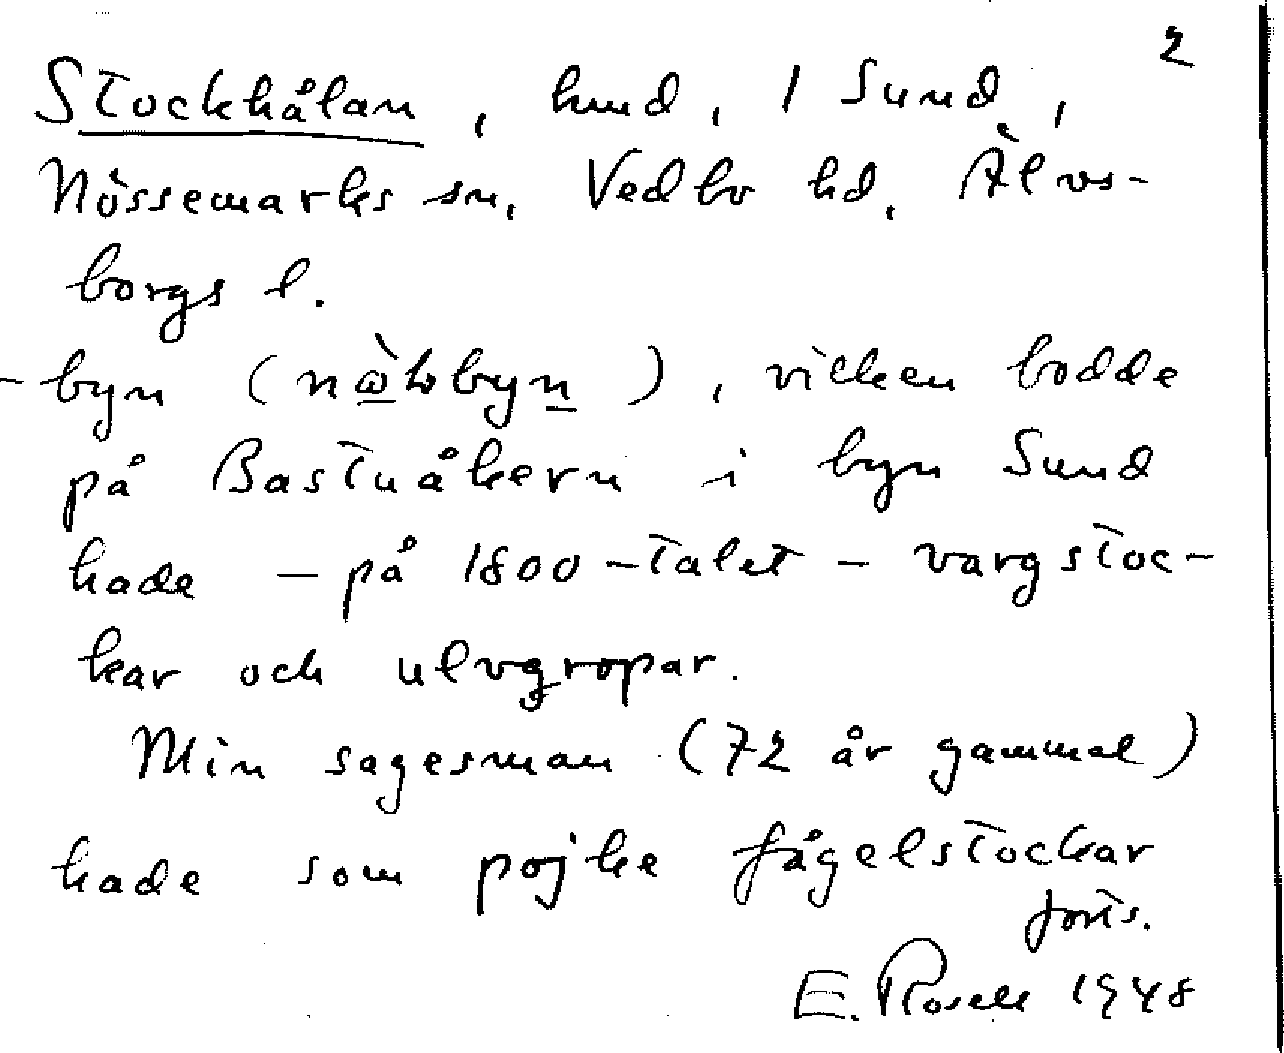 2
Stockhålan, hmd, 1 Sund,
Nössemarks sn, Vedbo hd, Älvs-
borgs l.
-byn ( ), vilken bodde
på Bastuåkern i byn Sund
hade - på 1800-talet - vargstoc-
kar och ulvgropar.
Min sagesman (72 år gammal)
hade som pojke fågelstockar
forts.
E. Rosell 1948